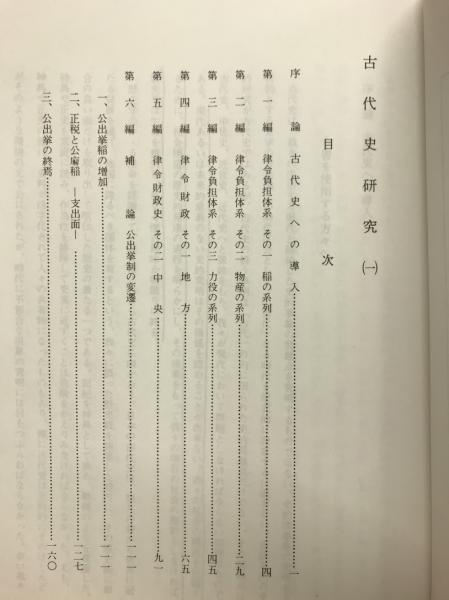 古代史研究㈠
目次
序論 古代史への導入……一
第一編 律令負担体系 その一 稲の系列……四
第二編 律令負担体系 その二 物産の系列……二九
第三編 律令負担体系 その三 力役の系列……四五
第四編 律令財政 その一 地方……六五
第五編 律令財政史 その二 中央……九一
第六編 補論 公出挙制の変遷……一一一
一、公出挙稲の増加……一一一
二、正税と公廨稲 ―支出面―……一二七
三、公出挙の終焉……一六〇